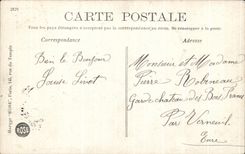 2828
CARTE POSTALE
Tous les pays étrangers n'acceptent pas la correspondance au recto. Se renseigner à la poste
Correspondance
Adresse
Bien le Bonjour
Louise
Monsieur et Madame
Pierre Robineau
Garde chateau des Bois Francs
Par Verneuil
Eure
Marque "ROSE", Paris, 146, rue du Temple
ROSE